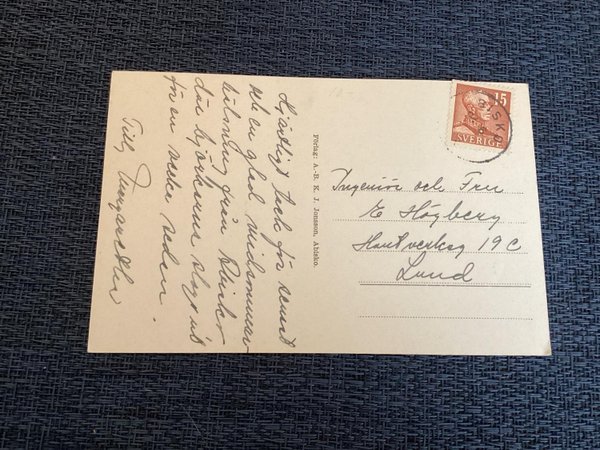 Hjärtligt tack för senast
och en glad midsommar
hälsning från Abisko
där björkarna slog ut
för en vecka sedan.
Tilly
Förlag: A.-B. K. J. Jonsson, Abisko.
15
SVERIGE
ABISKO
Ingeniör och Fru
E Högberg
Hantverksg 19 C
Lund